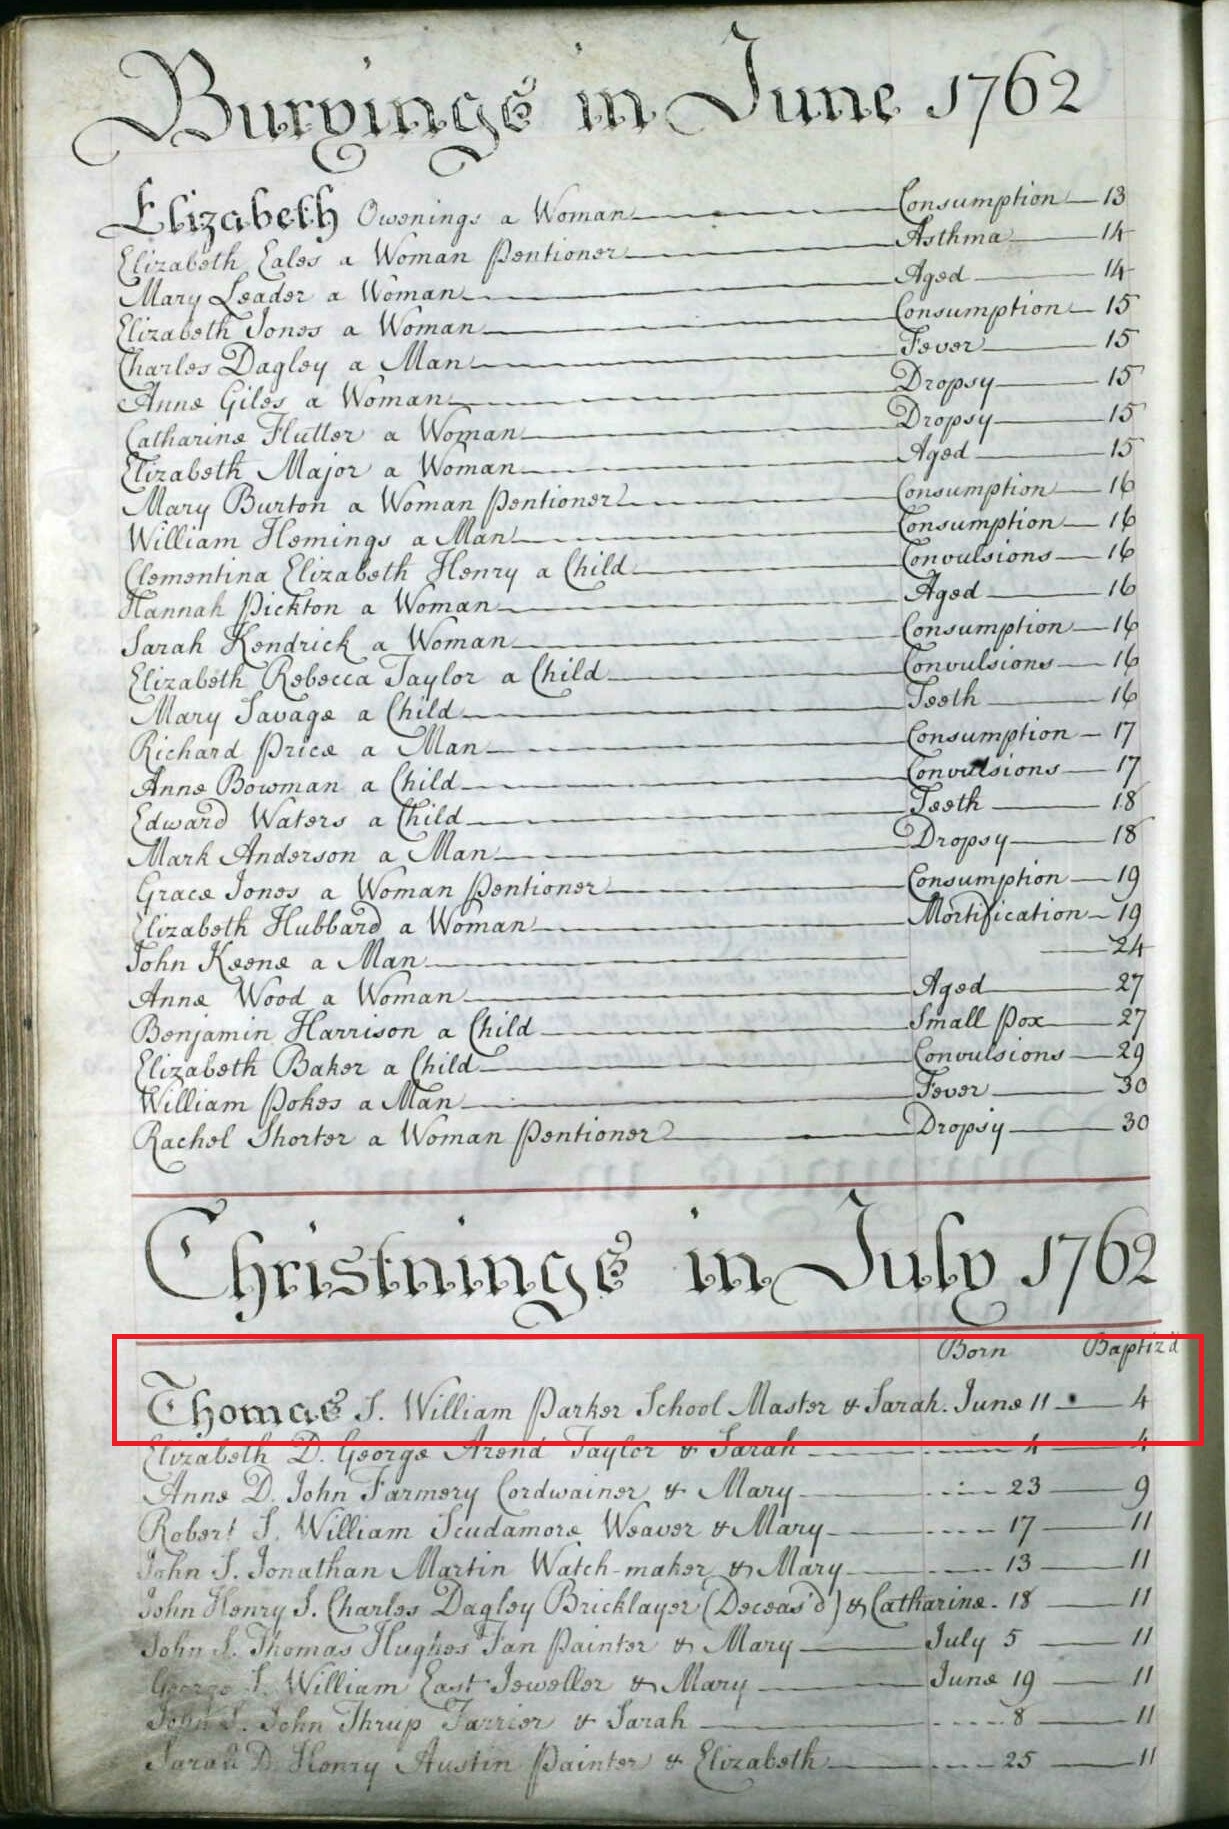 Buryings in June 1762
Elizabeth Owenings a Woman Consumption 13
Elizabeth Eales a Woman Pentioner Asthma 14
Mary Leader a Woman Aged 14
Elizabeth Jones a Woman Consumption 15
Charles Dagley a Man Fever 15
Anne Giles a Woman Dropsy 15
Catharine Flutter a Woman Dropsy 15
Elizabeth Major a Woman Aged 15
Mary Burton a Woman Pentioner Consumption 16
William Hemings a Man Consumption 16
Clementina Elizabeth Henry a Child Convulsions 16
Hannah Pickton a Woman Aged 16
Sarah Kendrick a Woman Consumption 16
Elizabeth Rebecca Taylor a Child Convulsions 16
Mary Savage a Child Teeth 16
Richard Price a Man Consumption 17
Anne Bowman a Child Convulsions 17
Edward Waters a Child Teeth 18
Mark Anderson a Man Dropsy 18
Grace Jones a Woman Pentioner Consumption 19
Elizabeth Hubbard a Woman Mortification 19
John Keene a Man 24
Anne Wood a Woman Aged 27
Benjamin Harrison a Child Small Pox 27
Elizabeth Baker a Child Convulsions 29
William Pokes a Man Fever 30
Rachel Shorter a Woman Pentioner Dropsy 30
Christnings in July 1762
Born Baptiz'd
Thomas S. William Parker School Master & Sarah. June 11 4
Elizabeth D. George Arend Taylor & Sarah 4 4
Anne D. John Farmery Cordwainer & Mary 23 9
Robert S. William Scudamore Weaver & Mary 17 11
John S. Jonathan Martin Watch-maker & Mary 13 11
John Henry S. Charles Dagley Bricklayer (Deceas'd) & Catharine. 18 11
John S. Thomas Hughes Fan Painter & Mary July 5 11
George S. William East Jeweller & Mary June 19 11
John S. John Thrup Farrier & Sarah 8 11
Sarah D. Henry Austin Painter & Elizabeth 25 11